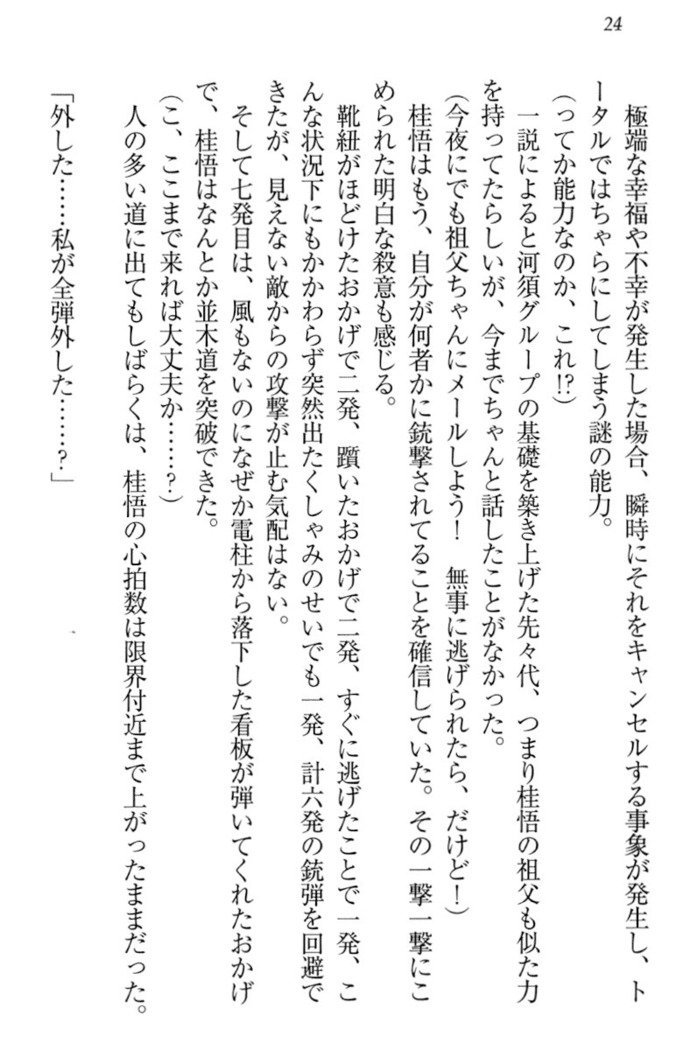 24
極端な幸福や不幸が発生した場合、瞬時にそれをキャンセルする事象が発生し、ト
ータルではちゃらにしてしまう謎の能力。
(ってか能力なのか、これ!?)
一説によると河須グループの基礎を築き上げた先々代、つまり桂悟の祖父も似た力
を持ってたらしいが、今までちゃんと話したことがなかった。
(今夜にでも祖父ちゃんにメールしよう! 無事に逃げられたら、だけど!)
桂悟はもう、自分が何者かに銃撃されてることを確信していた。その一撃一撃にこ
められた明白な殺意も感じる。
靴紐がほどけたおかげで二発、躓いたおかげで二発、すぐに逃げたことで一発、こ
んな状況下にもかかわらず突然出たくしゃみのせいでも一発、計六発の銃弾を回避で
きたが、見えない敵からの攻撃が止む気配はない。
そして七発目は、風もないのになぜか電柱から落下した看板が弾いてくれたおかげ
で、桂悟はなんとか並木道を突破できた。
(こ、ここまで来れば大丈夫か……?)
人の多い道に出てもしばらくは、桂悟の心拍数は限界付近まで上がったままだった。
「外した……私が全弾外した……?」